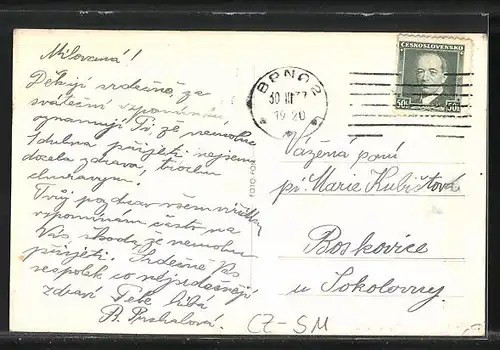 Milovaná!
Děkuji srdečně za
sváteční vzpomínku
oznamuji Ti, že nemohu
slubná přijeti nejsem
docela zdravá, trochu
churavým.
Tvůj pozdrav všem vyřídím
vzpomínám často na
Vás škoda že nemohu
přijeti. Srdečně Vás
respolek co nejsrdečněji
zdraví Tebe líbá
Puchalová.
ČESKOSLOVENSKO
50h 50h
BRNO 2
30 III 37
19 20
Vážená paní
pí. Marie Kubištová
Boskovice
u Sokolovny
CZ-SM